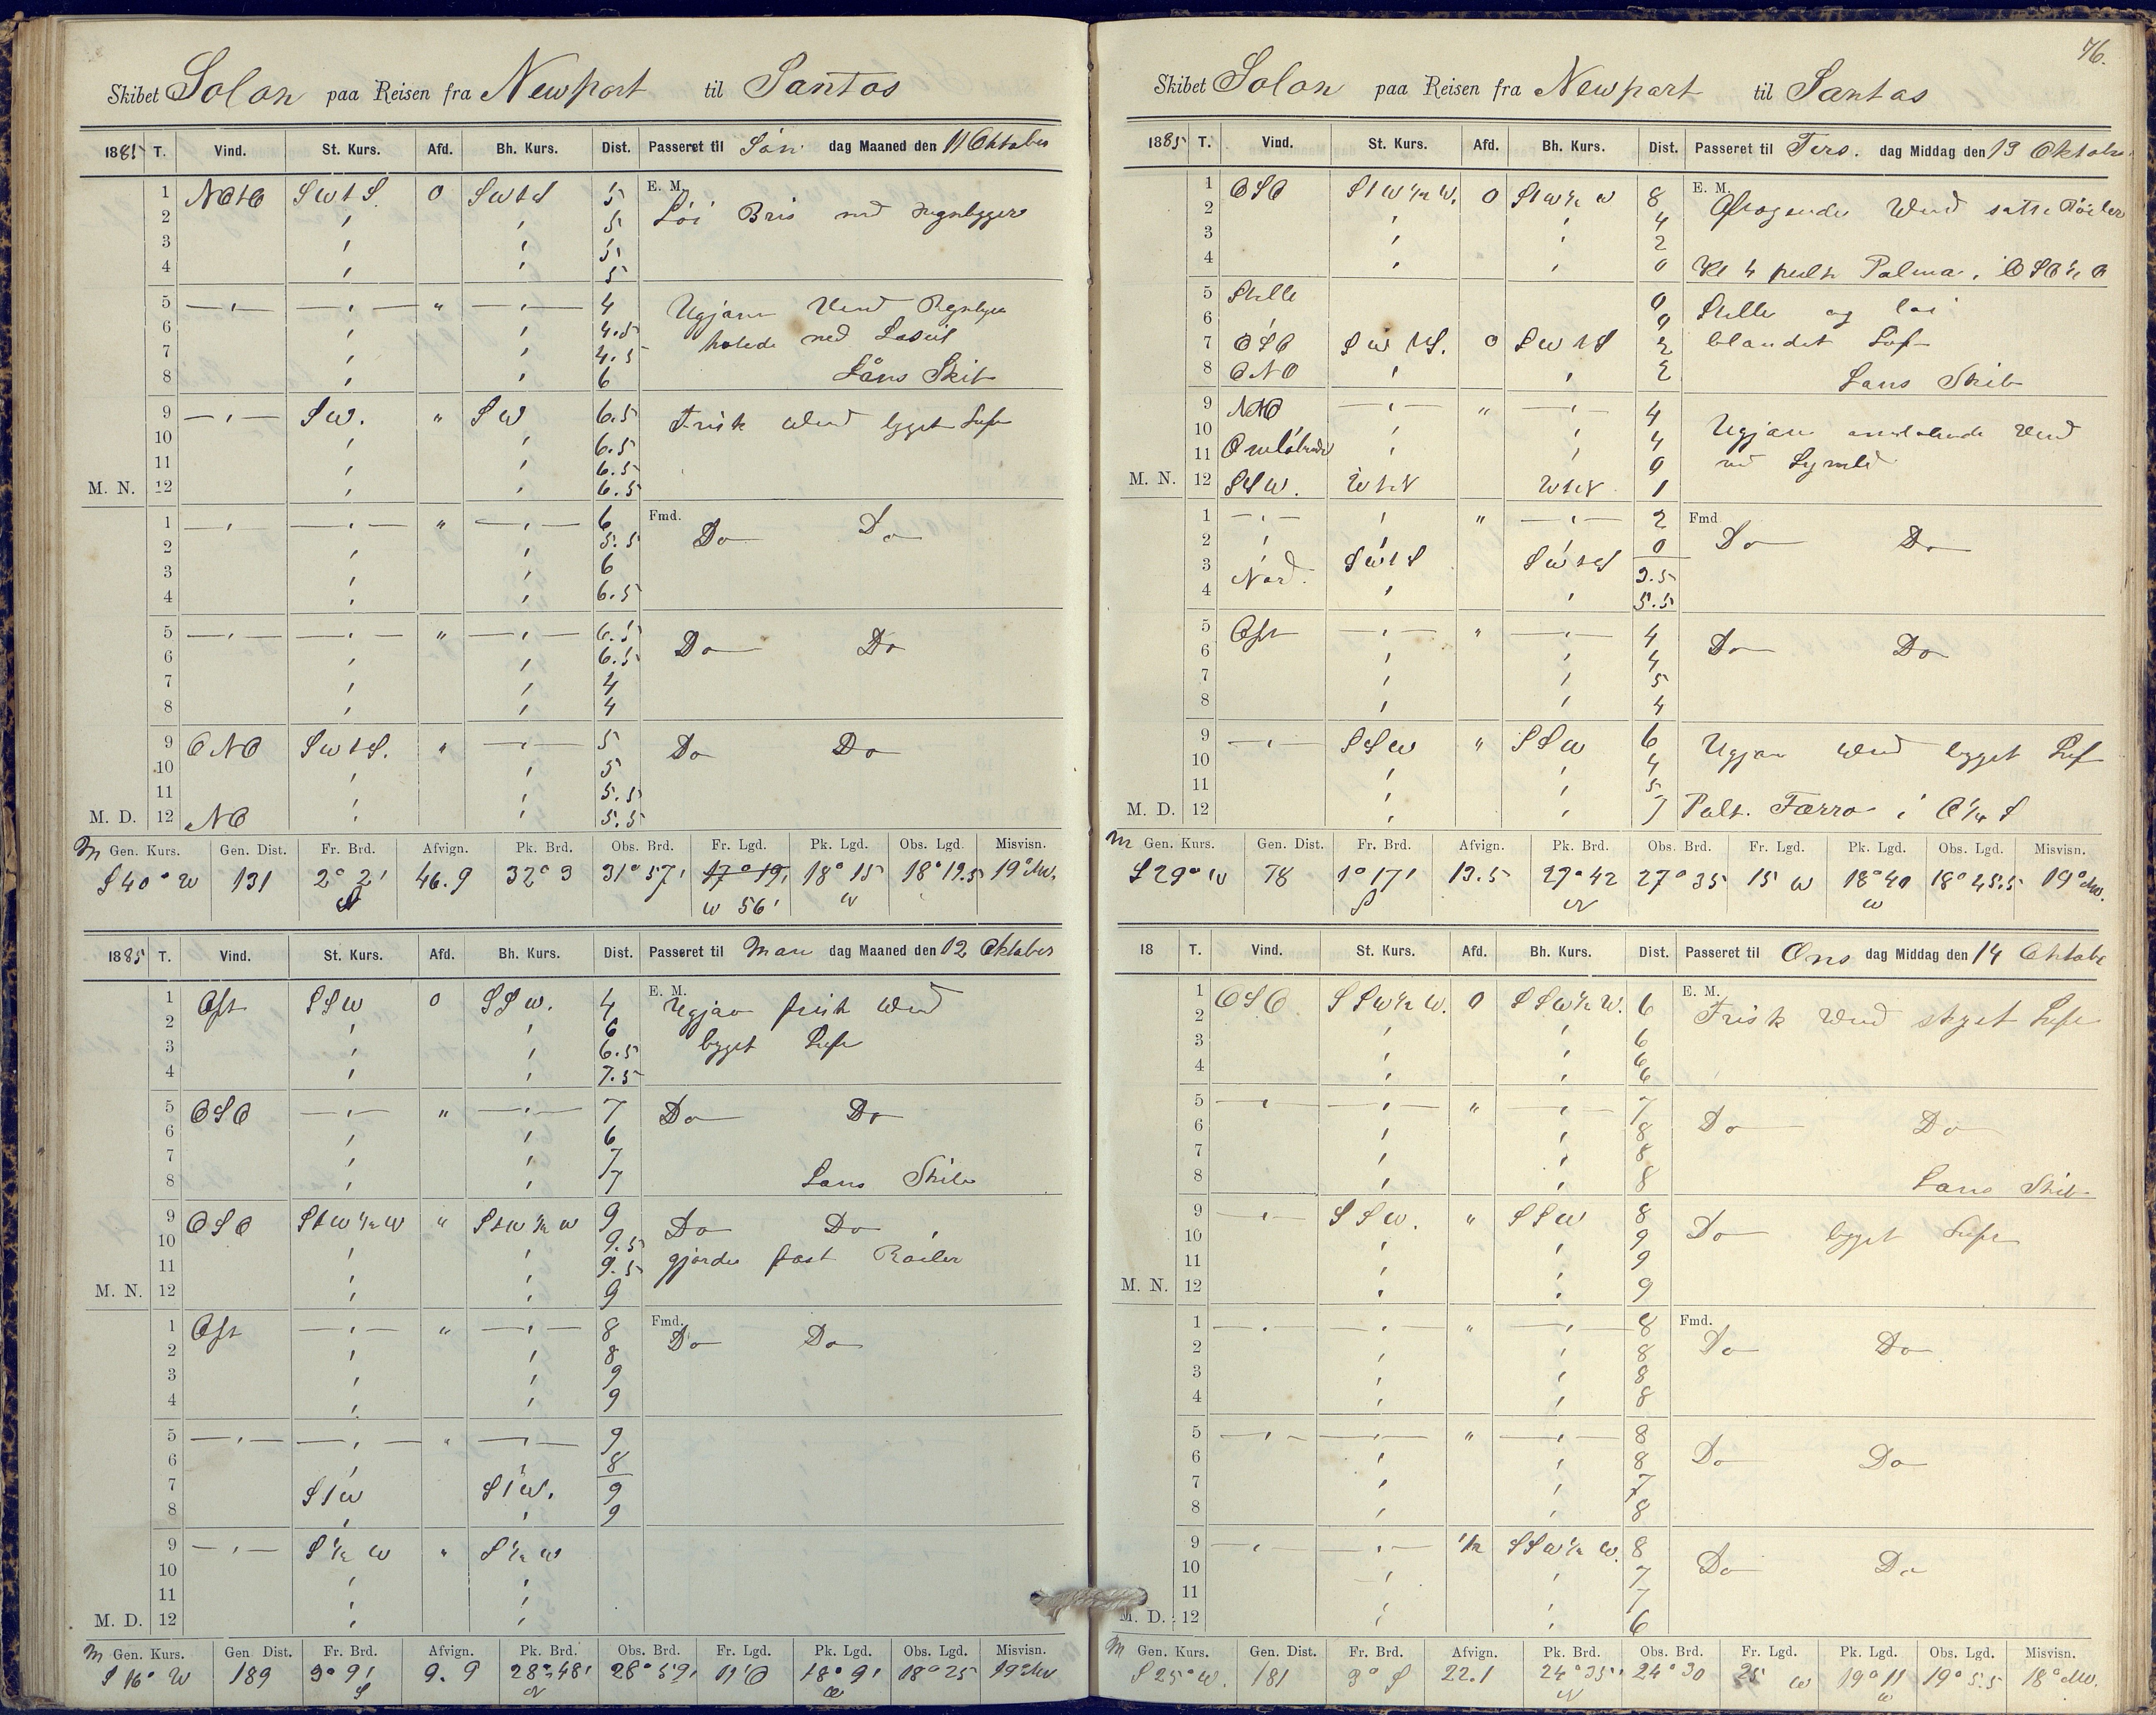 Skibet Solon paa Reisen fra Newport til Santos
1885 T. Vind. St. Kurs. Afd. Bh. Kurs. Dist. Passeret til Søn dag Maaned den 11 Oktober
1 NOtO SWtS. 0 SWtS 5 E. M.
2 5 Løi Bris med Regnbyger
3 5
4 5
5 4 Ugjævn Vind Regnbyger
6 4.5
7 4.5
8 6 Lans Skib
9 SW. " SW 6.5 Frisk Vind bygget Luft
10 6.5
11 6.5
M. N. 12 6.5
1 " 6 Fmd. Do Do
2 5.5
3 6
4 6.5
5 " 6.5 Do Do
6 6.5
7 4
8 4
9 ONO SWtS. " 5 Do Do
10 5
11 5.5
M. D. 12 NO 5.5
M Gen. Kurs. Gen. Dist. Fr. Brd. Afvign. Pk. Brd. Obs. Brd. Fr. Lgd. Pk. Lgd. Obs. Lgd. Misvisn.
S 40° W 131 2° 2' 46.9 32° 3 31° 57' 17° 19' 18° 15 18° 19.5 19° NW.
W 56' W
1885 T. Vind. St. Kurs. Afd. Bh. Kurs. Dist. Passeret til Man dag Maaned den 12 Oktober
1 Øst SSW 0 SSW. 4 E. M. Ugjævn frisk Vind
2 6
3 6.5 bygget Luft
4 7.5
5 OSO " 7 Do Do
6 6
7 7
8 7 Lans Skib
9 OSO StW ½ W " StW ½ W 9 Do Do
10 9.5
11 9.5 gjorde fast Røiler
M. N. 12 9
1 Øst " 8 Fmd. Do Do
2 8
3 9
4 9
5 " 9
6 8
7 StW StW. 9
8 9
9 S ½ W " S ½ W
10
11
M. D. 12
M Gen. Kurs. Gen Dist. Fr. Brd. Afvign. Pk. Brd. Obs. Brd. Fr. Lgd. Pk. Lgd. Obs. Lgd. Misvisn.
S 16° W 189 3° 9' 9.9 28° 48' 28° 59' 11' O 18° 9' 18° 25 19° NW
S N W
76.
Skibet Solon paa Reisen fra Newport til Santos
1885 T. Vind. St. Kurs. Afd. Bh. Kurs. Dist. Passeret til Tirs. dag Middag den 13 Oktober
1 OSO StW ½ W. 0 StW ½ W 8 E. M.
2 4 Vind satte Røiler
3 2
4 0 Kl 4 peilt Palma i OSO ½ O
5 Stille 0 Stille og løi
6 0
7 OSO SWtS. 0 SWtS 2 blandet Luft
8 ONO 2 Lans Skib
9 NtO " 4
10 4 Ugjævn omløbende Vind
11 Omløbende 0
M. N. 12 SSW. WtN WtN 1
1 " 2 Fmd Do Do
2 0
3 Nord. SWtS SWtS 3.5
4 5.5
5 Øst " 4 Do Do
6 4
7 5
8 4
9 SSW " SSW 6 Ugjævn Vind bygget Luft
10 4
11 5
M. D. 12 7 Peilt. Færro i O ¼ S
M Gen. Kurs. Gen. Dist. Fr. Brd. Afvign. Pk. Brd. Obs. Brd. Fr. Lgd. Pk. Lgd. Obs. Lgd. Misvisn.
S 29° W 78 1° 17' 13.5 27° 42 27° 35 15 W 18° 40 18° 45.5 19° NW.
S N W
18 T. Vind. St. Kurs. Afd. Bh. Kurs. Dist. Passeret til Ons dag Middag den 14 Oktober
1 OSO SSW ½ W. 0 SSW ½ W. 6 E. M.
2 Frisk Vind skyet Luft
3 6
4 6
6
5 " 7
6 8 Do Do
7 8
8 8 Lans Skib
9 SSW. " SSW 8 Do bygget Luft
10 9
11 9
M. N. 12 9
1 " 8 Fmd. Do Do
2 8
3 8
4 8
5 " 8 Do Do
6 8
7 7
8 8
9 ½ SSW ½ W. 8 Do Do
10 7
11 7
M. D. 12 6
M Gen. Kurs. Gen. Dist. Fr. Brd. Afvign. Pk. Brd. Obs. Brd. Fr. Lgd. Pk. Lgd. Obs. Lgd. Misvisn.
S 25° W. 181 3° S 22.1 24° 35' 24° 30 25 W 19° 11 19° 5.5 18° NW.
N W